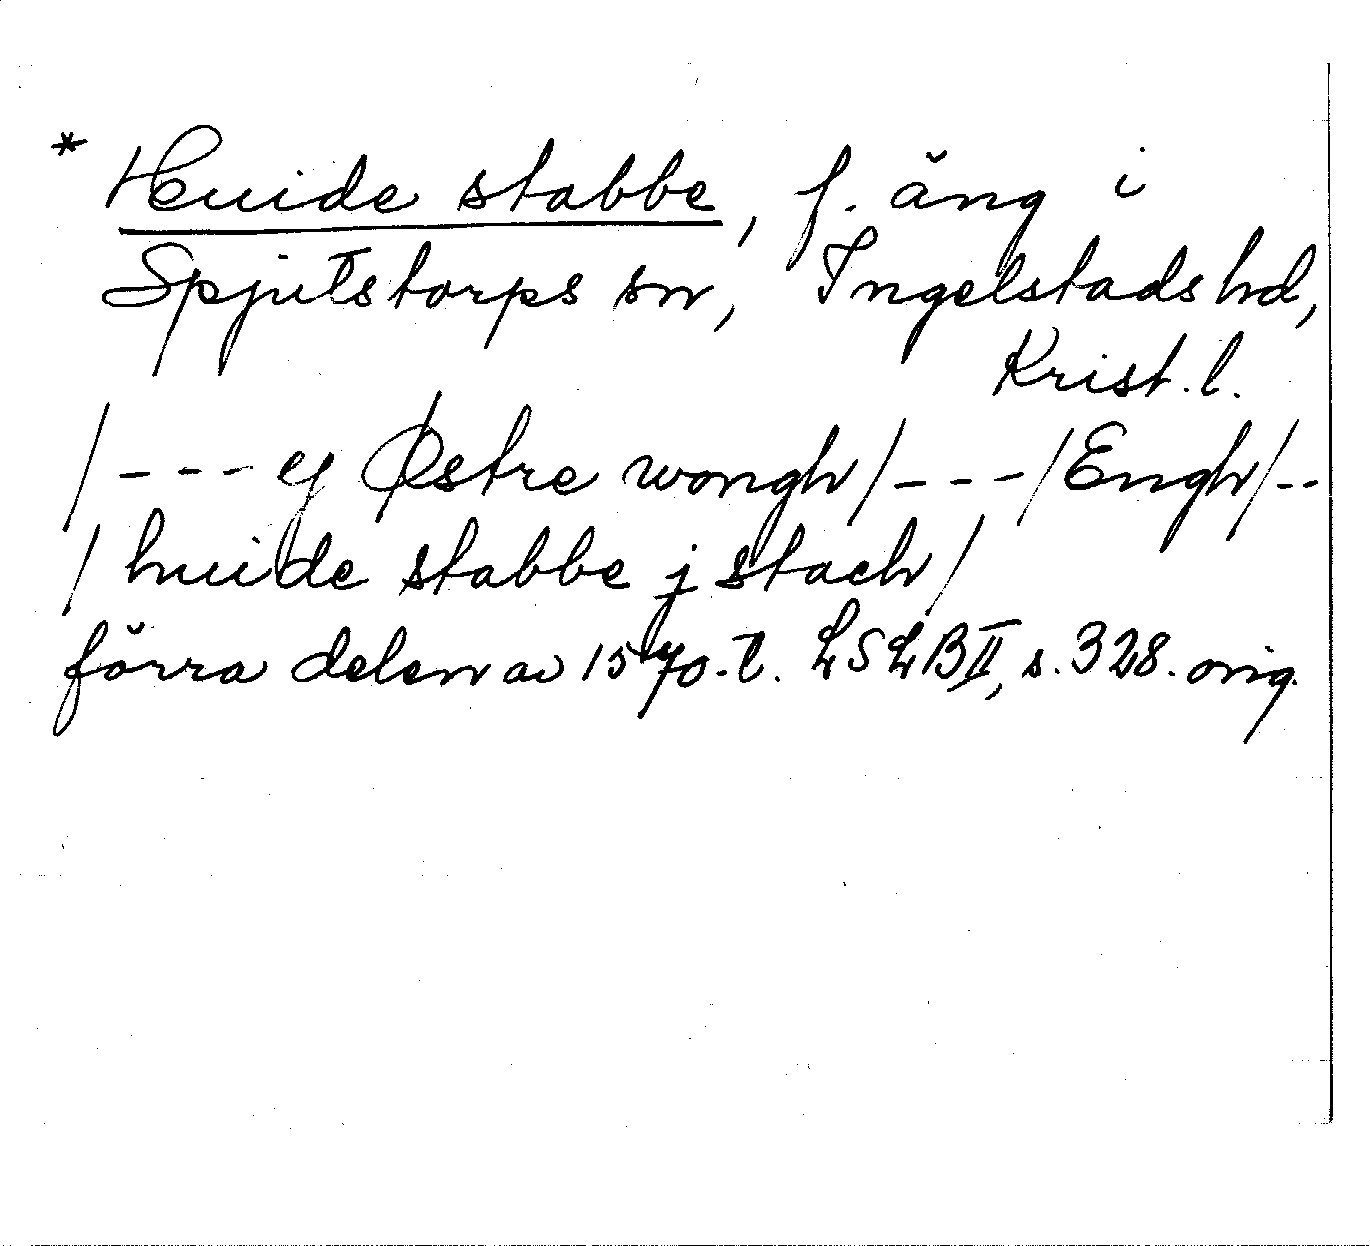 * Huide stabbe, f. äng i
Spjutstorps sn, Ingelstads hd,
Krist. l.
/--- ej Østre wongh/---/Engh/--
/huide stabbe j stach/
förra delen av 1570-t. LSLB II, s. 328. orig.